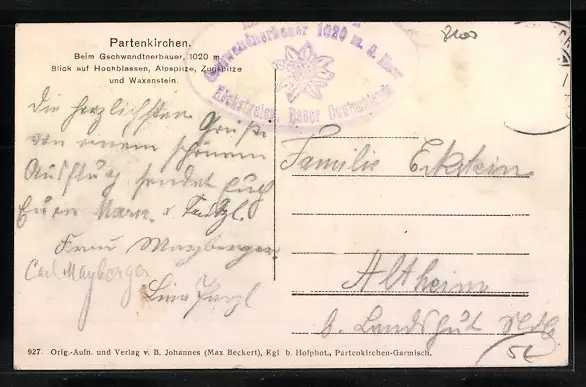 Partenkirchen.
Beim Gschwandtnerbauer, 1020 m.
Blick auf Hochblassen, Alpspitze, Zugspitze
und Waxenstein.
Gschwandnerbauer 1020 m. ü. Meer
Die herzlichsten Grüße
von einem schönen
Ausflug sendet Euch
Frau Mayberger
Carl Mayberger
Familie Eckstein
Altheim
b. Landshut
52
927 Orig.-Aufn. und Verlag v. B. Johannes (Max Beckert), Kgl b. Hofphot., Partenkirchen-Garmisch.